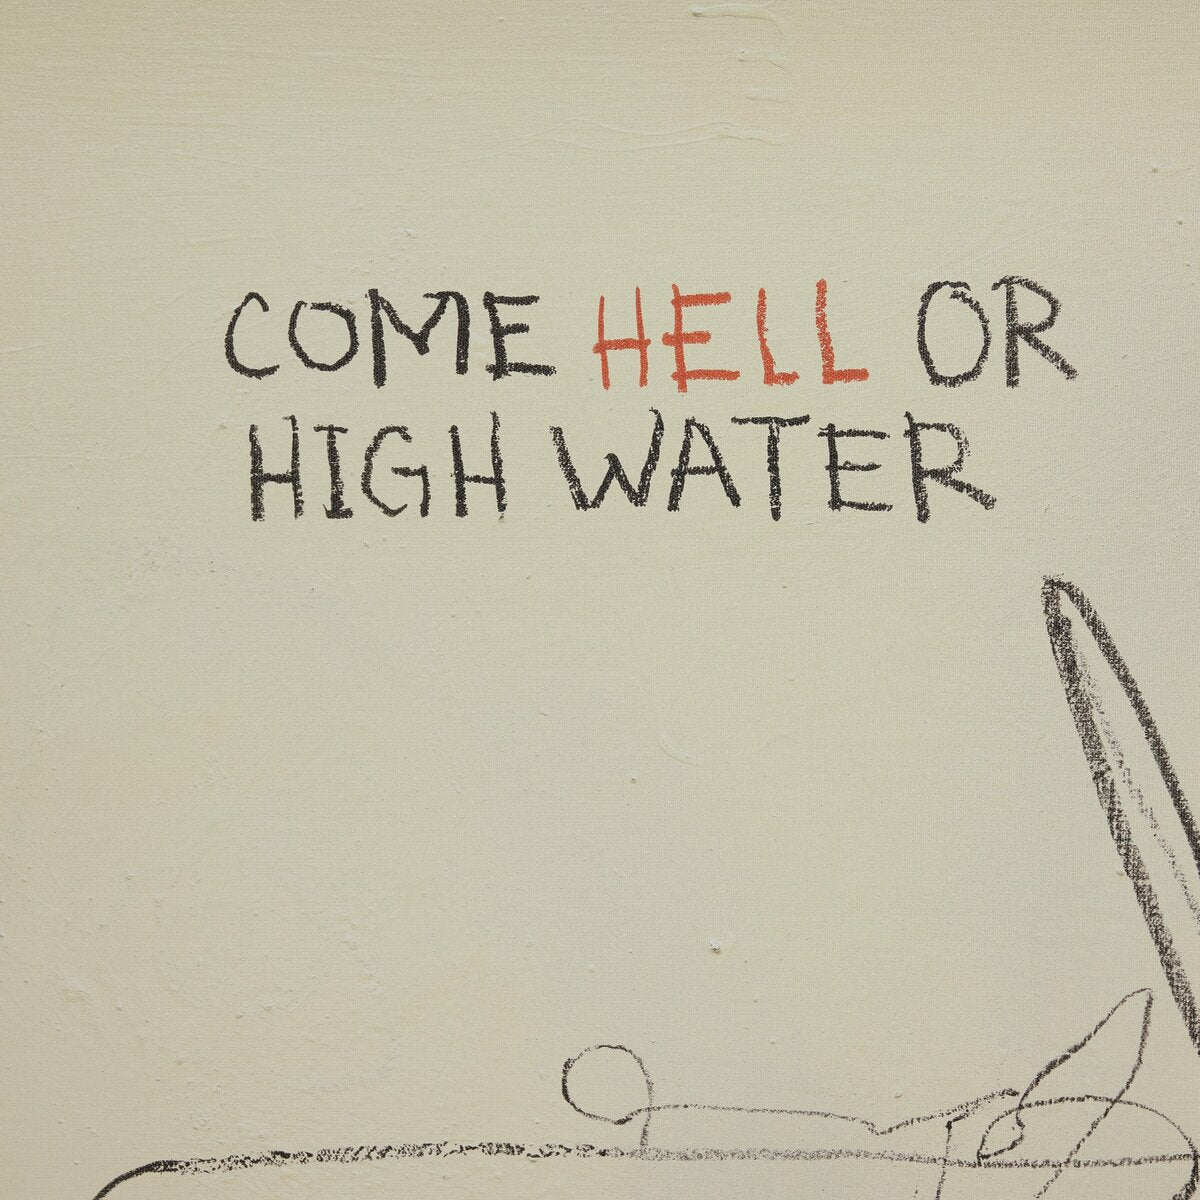 COME HELL OR
HIGH WATER